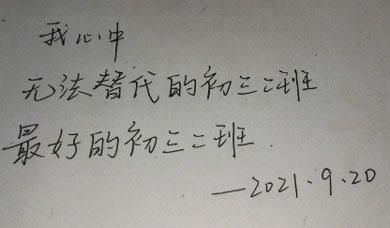 我心中
无法替代的初三二班
最好的初三二班.
—2021.9.20